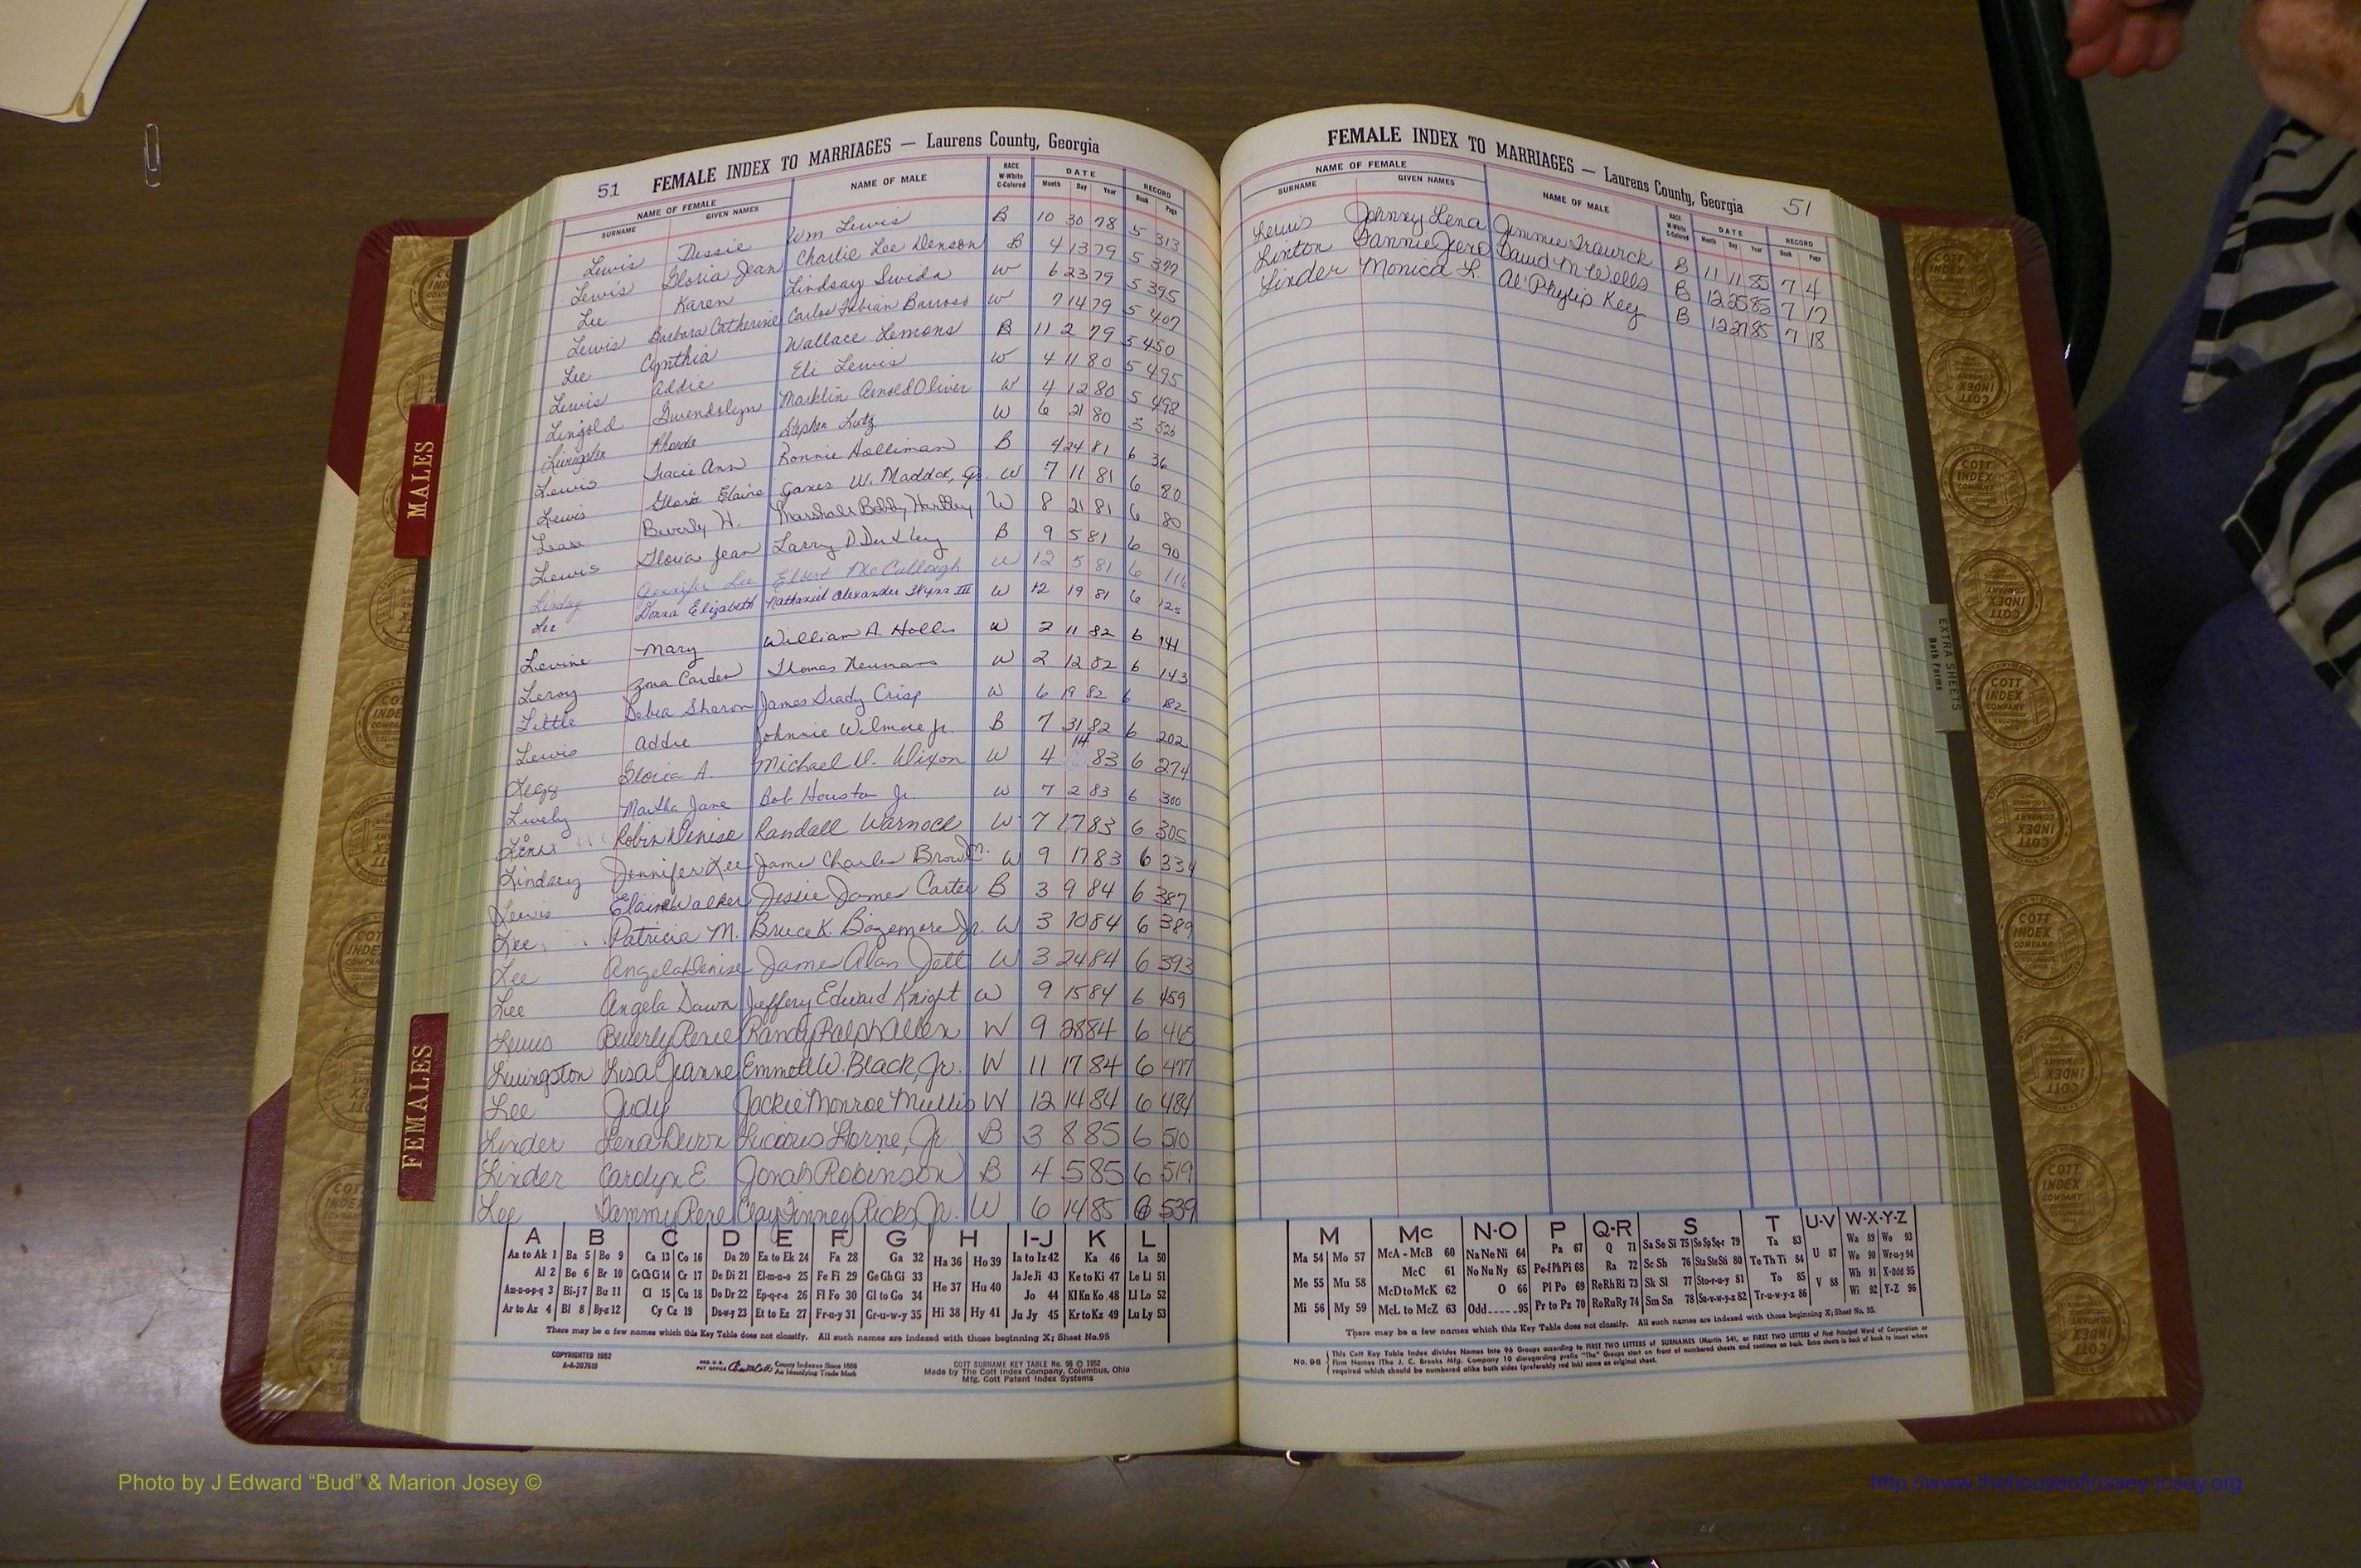 51 FEMALE INDEX TO MARRIAGES — Laurens County, Georgia
NAME OF FEMALE NAME OF MALE RACE W-White C-Colored DATE RECORD
SURNAME GIVEN NAMES Month Day Year Book Page
Lewis Dessie Wm Lewis B 10 30 78 5 313
Lewis Gloria Jean Charlie Lee Denson B 4 13 79 5 377
Lee Karen Lindsay W 6 23 79 5 395
Lewis Barbara Catherine Carlos Fabian W 7 14 79 5 407
Lee Cynthia Wallace Lemons B 11 2 79 5 450
Lewis Addie Eli Lewis W 4 11 80 5 495
Lingold Gwendolyn Macklin Arnold Oliver W 4 12 80 5 498
Livingston Rhonda Stephen Lutz W 6 21 80 526
Lewis Tracie Ann Ronnie Holliman B 4 24 81 6 36
Lewis Gloria Elaine James W. Maddox, Jr. W 7 11 81 6 80
Beverly H. Marshall Bobby Hartley W 8 21 81 6 80
Lewis Gloria Jean Larry D. B 9 5 81 6 90
Lindsey Jennifer Lee Elbert McCullough W 12 5 81 6
Lee Donna Elizabeth Nathaniel Alexander III W 12 19 81 6 125
Levine Mary William A. Hollis W 2 11 82 6 141
Leroy Zona Carden Thomas W 2 12 82 6 143
Little Debra Sharon James Grady Crisp W 6 19 82 6 182
Lewis Addie Johnnie Wilmore Jr. B 7 31 82 6 202
Legg Gloria A. Michael D. Dixon W 4 14 83 6 274
Lively Martha Jane Bob Houston Jr. W 7 2 83 6 300
Robin Denise Randall Warnock W 7 17 83 6 305
Lindsey Jennifer Lee James Charles Brown W 9 17 83 6 334
Lewis Elaine Walker Jessie James Carter B 3 9 84 6 387
Lee Patricia M. Bruce K. Bozemore Jr. W 3 10 84 6 389
Lee Angela Denise James Alan Jett W 3 24 84 6 393
Lee Angela Dawn Jeffery Edward Knight W 9 15 84 6 459
Lewis Beverly Renee Randy Ralph Allen W 9 28 84 6 465
Livingston Lisa Jeanne Emmett W. Black, Jr. W 11 17 84 6 477
Lee Judy Jackie Monroe Mullis W 12 14 84 6 484
Linder Lena Horne, Jr. B 3 8 85 6 510
Linder Carolyn E Jonah Robinson B 4 5 85 6 519
Lee Tammy Rene Clay Ricks, Jr. W 6 14 85 6 539
A B C D E F G H I-J K L
Aa to Ak 1 Ba 5 Bo 9 Ca 13 Co 16 Da 20 Ea to Ek 24 Fa 28 Ga 32 Ha 36 Ho 39 Ia to Iz 42 Ka 46 La 50
Al 2 Be 6 Br 10 Ce Ch Ci 14 Cr 17 De Di 21 El-m-n-o 25 Fe Fi 29 Ge Gh Gi 33 He 37 Hu 40 Ja Je Ji 43 Ke to Ki 47 Le Li 51
Am-n-o-p-q 3 Bi-j 7 Bu 11 Cl 15 Cu 18 Do Dr 22 Ep-q-r-s 26 Fl Fo 30 Gl to Go 34 Jo 44 Kl Kn Ko 48 Ll Lo 52
Ar to Az 4 Bl 8 By-z 12 Cy Cz 19 Du-w-y 23 Et to Ez 27 Fr-u-y 31 Gr-u-w-y 35 Hi 38 Hy 41 Ju Jy 45 Kr to Kz 49 Lu Ly 53
There may be a few names which this Key Table does not classify. All such names are indexed with those beginning X; Sheet No. 95
COPYRIGHTED 1952
A-A-207619
REG. U.S. PAT OFFICE County Indexes Since 1888
An Identifying Trade Mark
COTT SURNAME KEY TABLE No. 96 © 1952
Made by The Cott Index Company, Columbus, Ohio
Mfg. Cott Patent Index Systems
FEMALE INDEX TO MARRIAGES — Laurens County, Georgia 51
NAME OF FEMALE NAME OF MALE RACE W-White C-Colored DATE RECORD
SURNAME GIVEN NAMES Month Day Year Book Page
Lewis Johnney Lena Jimmie Trawick B 11 11 85 7 4
Linton David M. Wells B 12 25 85 7 17
Linder Monica L. Al Phylip Key B 12 27 85 7 18
M Mc N-O P Q-R S T U-V W-X-Y-Z
Ma 54 Mo 57 McA - McB 60 Na Ne Ni 64 Pa 67 Q 71 Sa Se Si 75 So Sp Sq-r 79 Ta 83 Wa 89 Wo 93
Me 55 Mu 58 McC 61 No Nu Ny 65 Pe-f Ph Pi 68 Ra 72 Sc Sh 76 Sta Ste Sti 80 Te Th Ti 84 U 87 We 90 Wr-u-y 94
McD to McK 62 O 66 Pl Po 69 Re Rh Ri 73 Sk Sl 77 Sto-r-u-y 81 To 85 Wh 91 X-Odd 95
Mi 56 My 59 McL to McZ 63 Odd 95 Pr to Pz 70 Ro Ru Ry 74 Sm Sn 78 Su-v-w-y-z 82 Tr-u-w-y-z 86 V 88 Wi 92 Y-Z 96
There may be a few names which this Key Table does not classify. All such names are indexed with those beginning X; Sheet No. 95.
No. 96 This Cott Key Table Index divides Names into 96 Groups according to FIRST TWO LETTERS of SURNAMES (Martin 54), or FIRST TWO LETTERS of First Principal Word of Corporation or
Firm Names (The J. C. Brooks Mfg. Company 10 disregarding prefix "The" Groups start on front of numbered sheets and continue on back. Extra sheets in back of book to insert where
required which should be numbered alike both sides (preferably red ink) same as original sheet.
MALES
FEMALES
EXTRA SHEETS
Both Forms
COTT INDEX COMPANY
Photo by J Edward “Bud” & Marion Josey ©
http://www.thehouseofjossey-josey.org